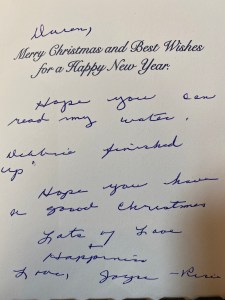 Merry Christmas and Best Wishes
for a Happy New Year.
Hope you can
read my
finished
up"
Hope you have
a good Christmas
Lots of Love
+
Happiness
Love, Joyce